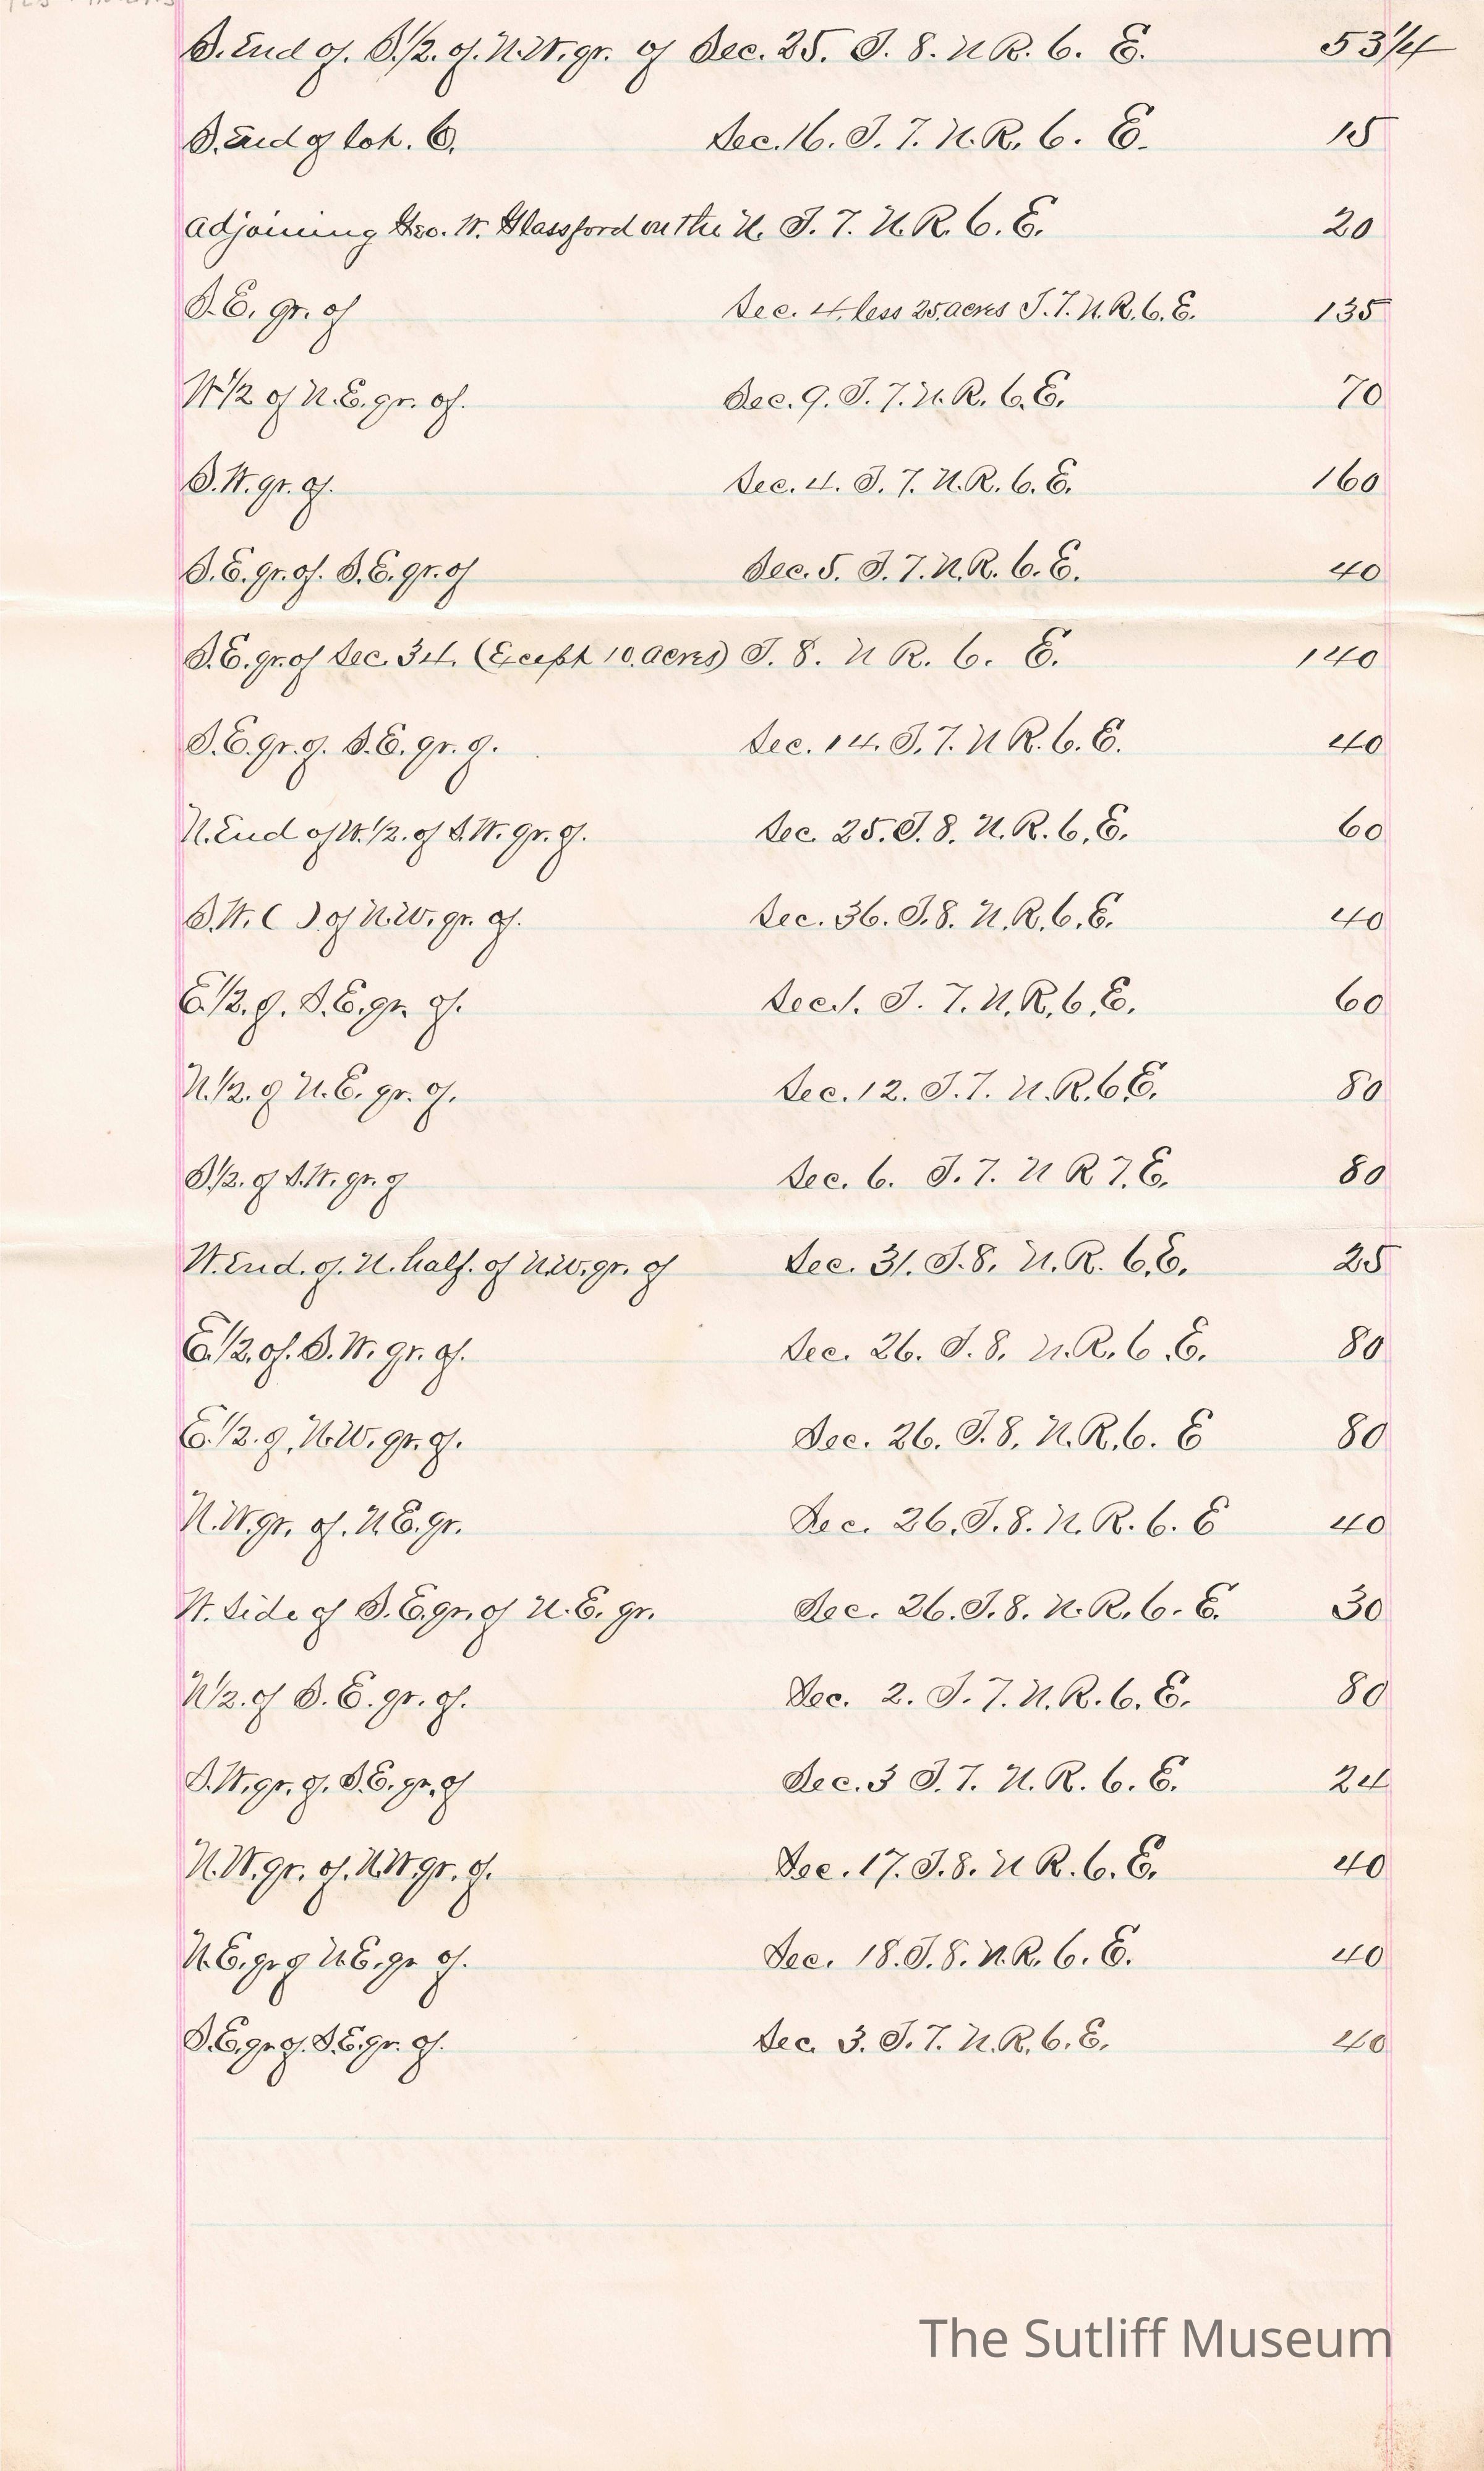 S. End of. S. 1/2. of. N. W. qr. of Sec. 25. T. 8. N R. 6. E. 53 1/4
S. End of lot. 6. Sec. 16. T. 7. N. R. 6. E. 15
adjoining Geo. W. Glassford on the N. T. 7. N. R. 6. E. 20
S. E. qr. of Sec. 4. less 25. acres T. 7. N. R. 6. E. 135
W 1/2 of N. E. qr. of. Sec. 9. T. 7. N. R. 6. E. 70
S. W. qr. of. Sec. 4. T. 7. N. R. 6. E. 160
S. E. qr. of. S. E. qr. of Sec. 5. T. 7. N. R. 6. E. 40
S. E. qr. of Sec. 34. (Except 10. acres) T. 8. N R. 6. E. 140
S. E. qr. of. S. E. qr. of. Sec. 14. T. 7. N R. 6. E. 40
N. End of W. 1/2. of S. W. qr. of. Sec. 25. T. 8. N. R. 6. E. 60
S. W. ( ) of N. W. qr. of. Sec. 36. T. 8. N. R. 6. E. 40
E. 1/2. of. S. E. qr. of. Sec. 1. T. 7. N. R. 6. E. 60
N. 1/2. of N. E. qr. of. Sec. 12. T. 7. N. R. 6 E. 80
S. 1/2. of S. W. qr. of Sec. 6. T. 7. N R 7. E. 80
W. End. of. N. half. of N. W. qr. of Sec. 31. T. 8. N. R. 6. E. 25
E. 1/2. of. S. W. qr. of. Sec. 26. T. 8. N. R. 6. E. 80
E. 1/2. of. N. W. qr. of. Sec. 26. T. 8. N. R. 6. E 80
N. W. qr. of. N. E. qr. Sec. 26. T. 8. N. R. 6. E 40
W. Side of S. E. qr. of N. E. qr. Sec. 26. T. 8. N. R. 6. E. 30
N 1/2. of S. E. qr. of. Sec. 2. T. 7. N. R. 6. E. 80
S. W. qr. of. S. E. qr. of Sec. 3 T. 7. N. R. 6. E. 24
N. W. qr. of. N. W. qr. of. Sec. 17. T. 8. N R. 6. E. 40
N. E. qr of N. E. qr of. Sec. 18. T. 8. N. R. 6. E. 40
S. E. qr of. S. E. qr. of. Sec. 3. T. 7. N. R. 6. E. 40
The Sutliff Museum